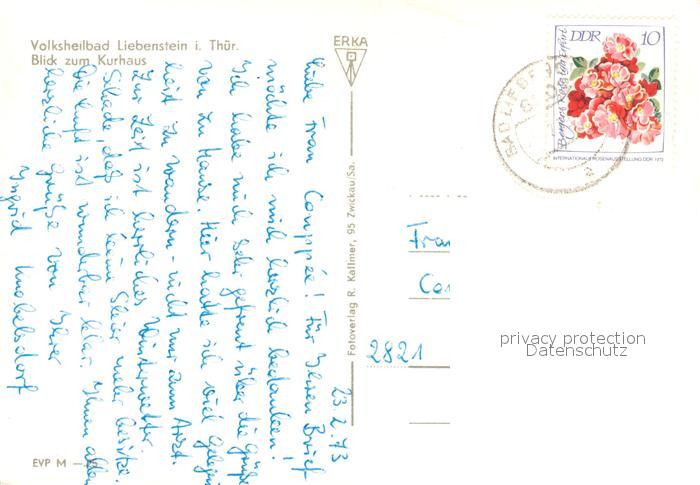 Volksheilbad Liebenstein i. Thür.
Blick zum Kurhaus
ERKA
DDR
10
INTERNATIONALE ROSENAUSSTELLUNG DDR 1972
BAD LIEBE
a
23.2.73
Liebe Frau Couppée! Für Ihren Brief
möchte ich mich herzlich bedanken!
Ich habe mich sehr gefreut über die Grüße
von zu Hause. Hier hatte ich viel Gelegen
heit zu wandern - nicht nur zum Arzt.
Zur Zeit ist herrliches Winterwetter.
Schade, daß ich keine Skier mehr besitze.
Die Luft ist wunderbar klar. Ihnen allen
herzliche Grüße von Ihrer
Ingrid Knobelsdorf
Fotoverlag R. Kallmer, 95 Zwickau/Sa.
Frau
Co
2821
privacy protection
Datenschutz
EVP M —